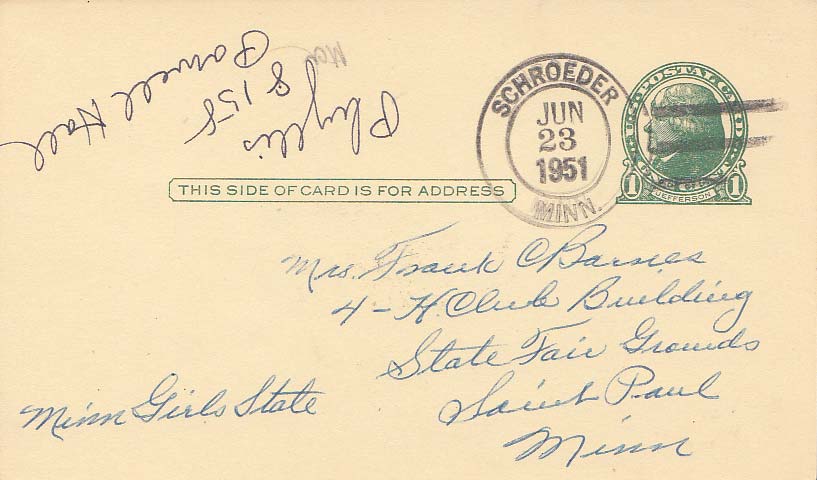 Phyllis
8158
Powell Hall
SCHROEDER
JUN
23
1951
MINN.
U.S. POSTAL CARD
1 JEFFERSON 1
THIS SIDE OF CARD IS FOR ADDRESS
Mrs. Frank C Barnes
4-H. Club Building
State Fair Grounds
Saint Paul
Minn
Minn Girls State